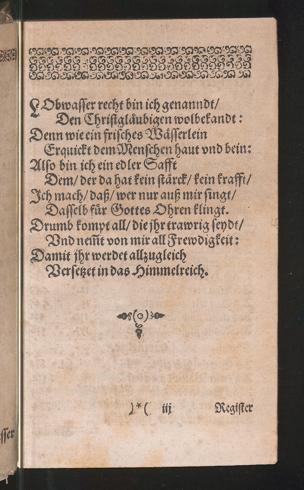 LObwasser recht bin ich genanndt/
Den Christgläubigen wolbekandt:
Denn wie ein frisches Wässerlein
Erquickt dem Menschen haut vnd bein:
Also bin ich ein edler Safft
Dem/ der da hat kein stärck/ kein krafft/
Ich mach/ daß/ wer nur auß mir singt/
Dasselb für Gottes Ohren klingt.
Drumb kompt all/ die jhr trawrig seydt/
Vnd nem̃t von mir all Frewdigkeit:
Damit jhr werdet allzugleich
Versetzet in das Himmelreich.
)*( iij Register